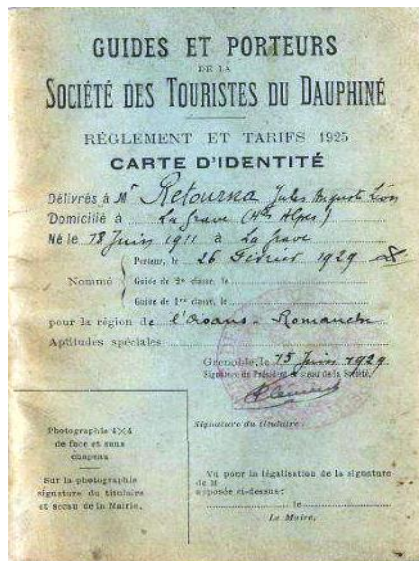 GUIDES ET PORTEURS
DE LA
SOCIÉTÉ DES TOURISTES DU DAUPHINÉ
RÉGLEMENT ET TARIFS 1925
CARTE D'IDENTITÉ
Délivrés à Mr Retourna Jules Auguste Léon
Domicilié à La Grave (Htes Alpes)
Né le 18 Juin 1911 à La Grave
Porteur, le 26 Février 1929
Nommé
Guide de 2e classe, le
Guide de 1re classe, le
pour la région de l'Oisans - Romanche
Aptitudes spéciales
Grenoble, le 15 Juin 1929
Signature du Président et sceau de la Société,
Photographie 4×4
de face et sans
chapeau
Sur la photographie
signature du titulaire
et sceau de la Mairie.
Signature du titulaire :
Vu pour la légalisation de la signature
de M
apposée ci-dessus :
le
Le Maire,